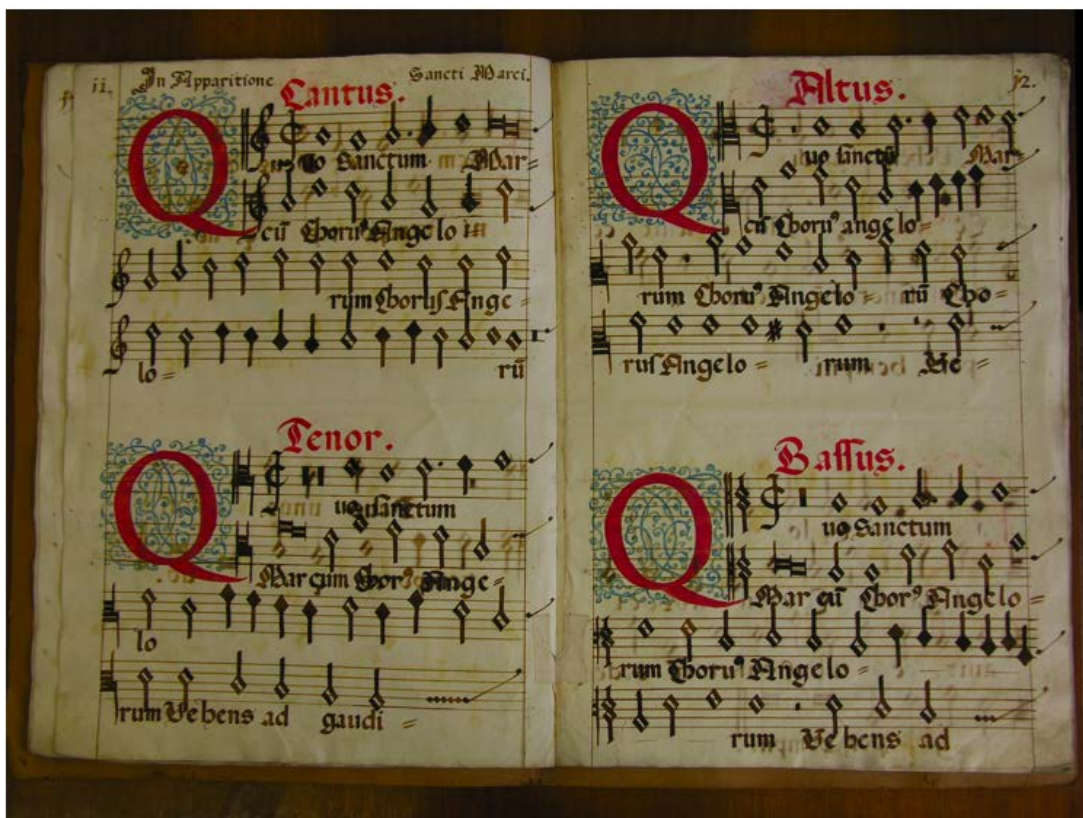 ii. In Apparitione Sancti Marci.
Cantus.
Quo Sanctum Mar=
cū Choruꝰ Angelo =
rum Chorus Ange =
lo = rū
Tenor.
Quo sanctum
Mar cum Chorꝰ Ange=
lo
rum Vehens ad gaudi =
j2.
Altus.
Quo sanctū Mar=
cū Choruꝰ angelo=
rum Choruꝰ Angelo = rū Cho=
rus Angelo = rum Ve =
Bassus.
Quo Sanctum
Mar cū Chorꝰ Angelo =
rum Choruꝰ Angelo =
rum Vehens ad